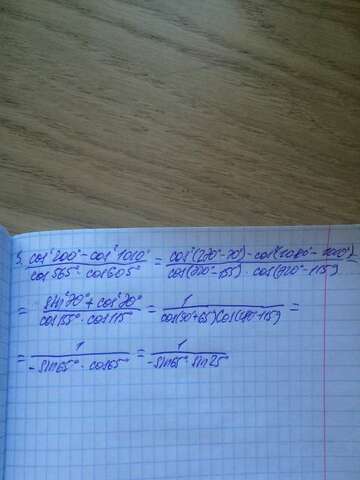 5. (cos²200° - cos²1010°)/(cos565° · cos605°) = (cos²(270° - 70°) - cos²(1080° - 1010°))/(cos(720° - 155°) · cos(720° - 115°))
= (sin²70° + cos²70°)/(cos155° · cos115°) = 1/(cos(90° + 65°) cos(180° - 115°)) =
= 1/(-sin65° · cos65°) = 1/(-sin65° sin25°)